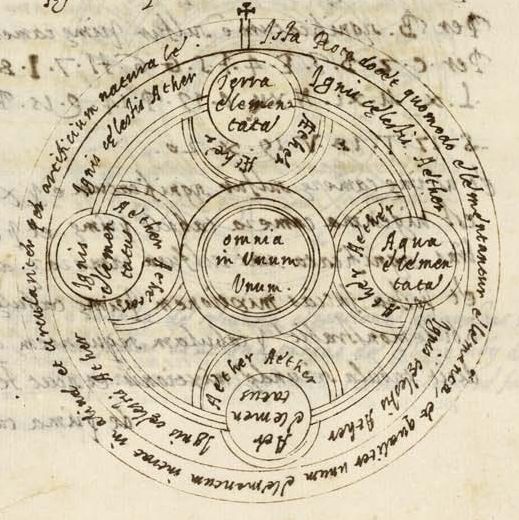 Ista Rota docet quomodo elementantur elementa, et qualiter unum elementum intrat in aliud et circulariter per artificium naturale.
Ignis cęlestis Aether
Ignis cęlestis Aether
Ignis cęlestis Aether
Ignis cęlestis Aether
Terra
elemen
tata
Aether
Aether
Ignis
elemen
tatus
Aether Aether
omnia
in Unum
Unum.
Aether Aether
Aqua
elemen
tata
Aether Aether
Aer
elemen
tatus